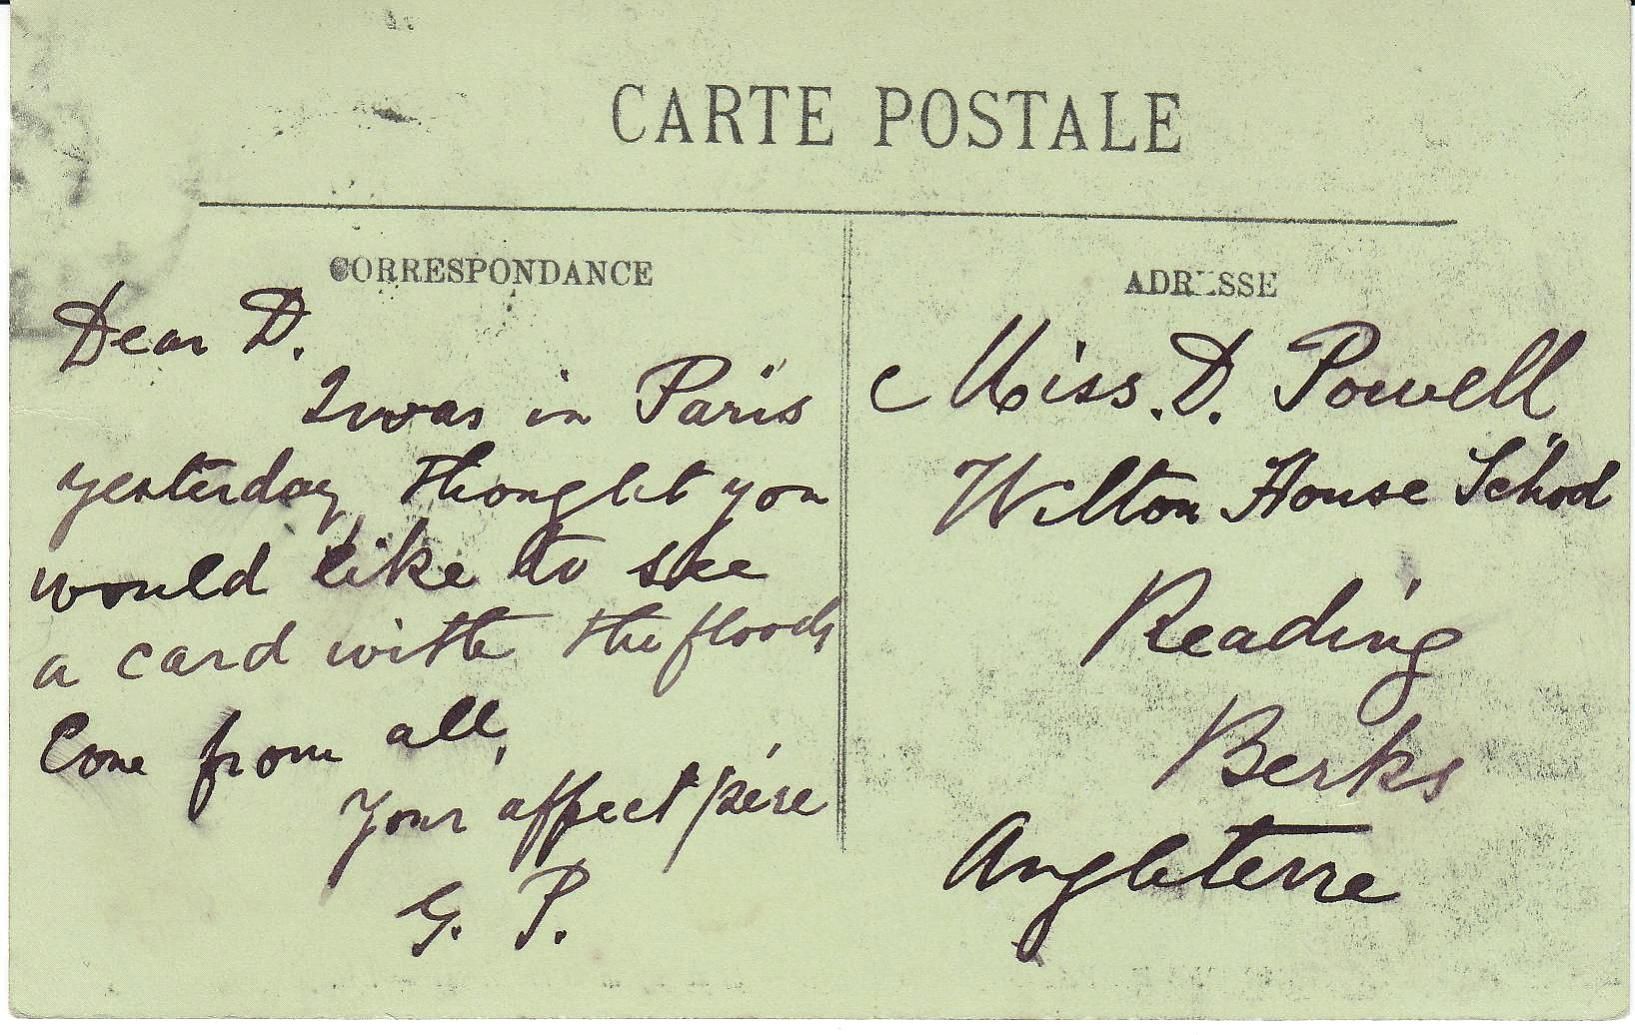 CARTE POSTALE
CORRESPONDANCE
Dear D.
I was in Paris
yesterday, thought you
would like to see
a card with the floods
Love from all,
Your affect père
G. P.
ADRESSE
Miss. D. Powell
Wilton House School
Reading
Berks
Angleterre